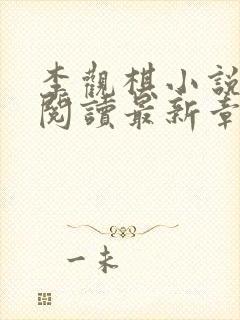 李觀棋小說
閱讀最新章
一未